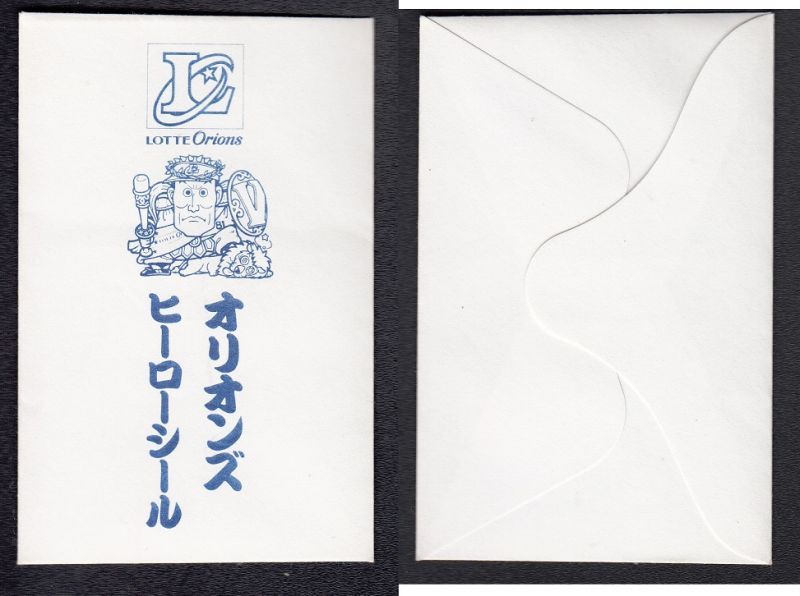 LOTTE Orions
オリオンズ
ヒーローシール